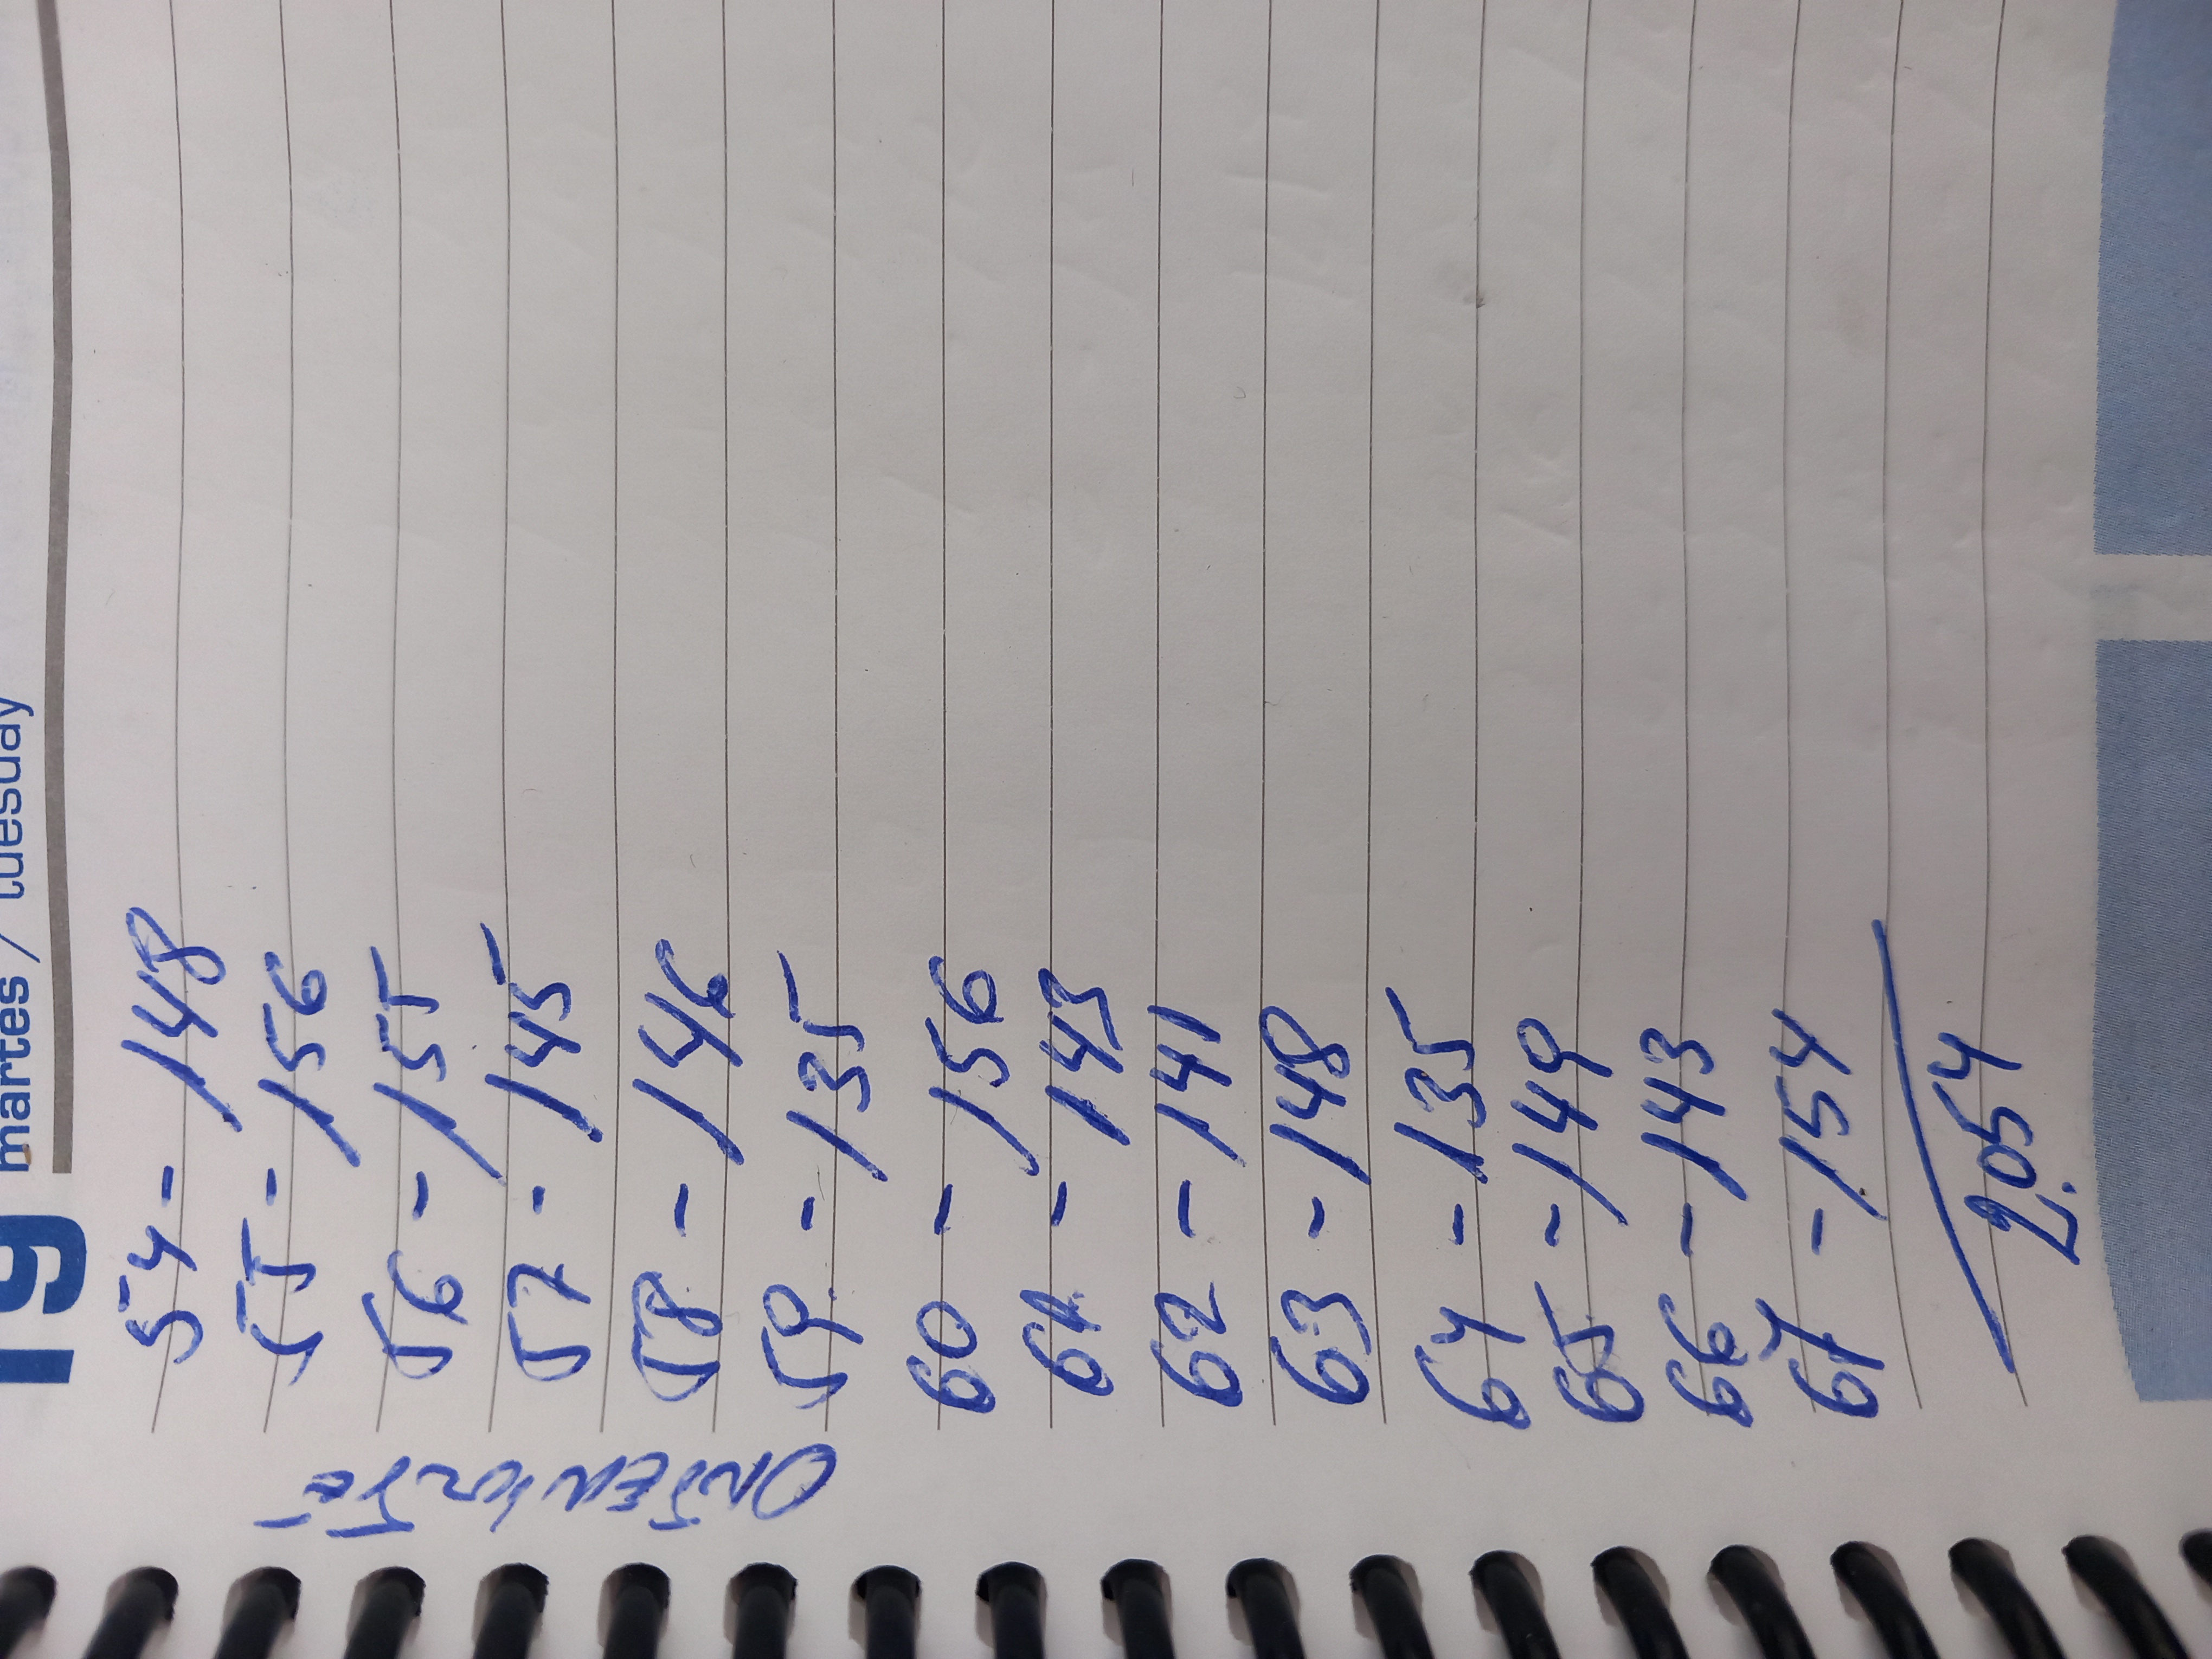 19 martes / tuesday
54 - 148
55 - 156
56 - 155
57 - 145
58 - 146
59 - 135
60 - 156
61 - 143
62 - 141
63 - 148
64 - 135
65 - 149
66 - 143
67 - 154
2.054